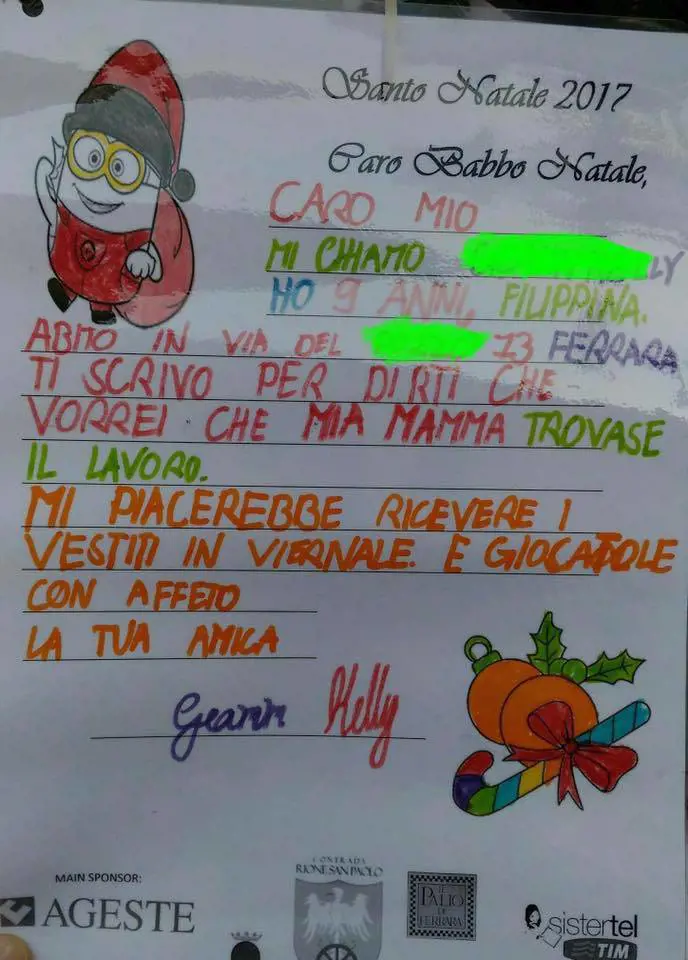 Santo Natale 2017
Caro Babbo Natale,
CARO MIO
MI CHIAMO LY
HO 9 ANNI, FILIPPINA.
ABITO IN VIA DEL 13 FERRARA
TI SCRIVO PER DIRTI CHE
VORREI CHE MIA MAMMA TROVASE
IL LAVORO.
MI PIACEREBBE RICEVERE I
VESTITI IN VIERNALE. E GIOCATOLE
CON AFFETO
LA TUA AMICA
Kelly
MAIN SPONSOR:
AGESTE
CONTRADA
RIONE SAN PAOLO
IL
PALIO
DI
FERRARA
sistertel
TIM